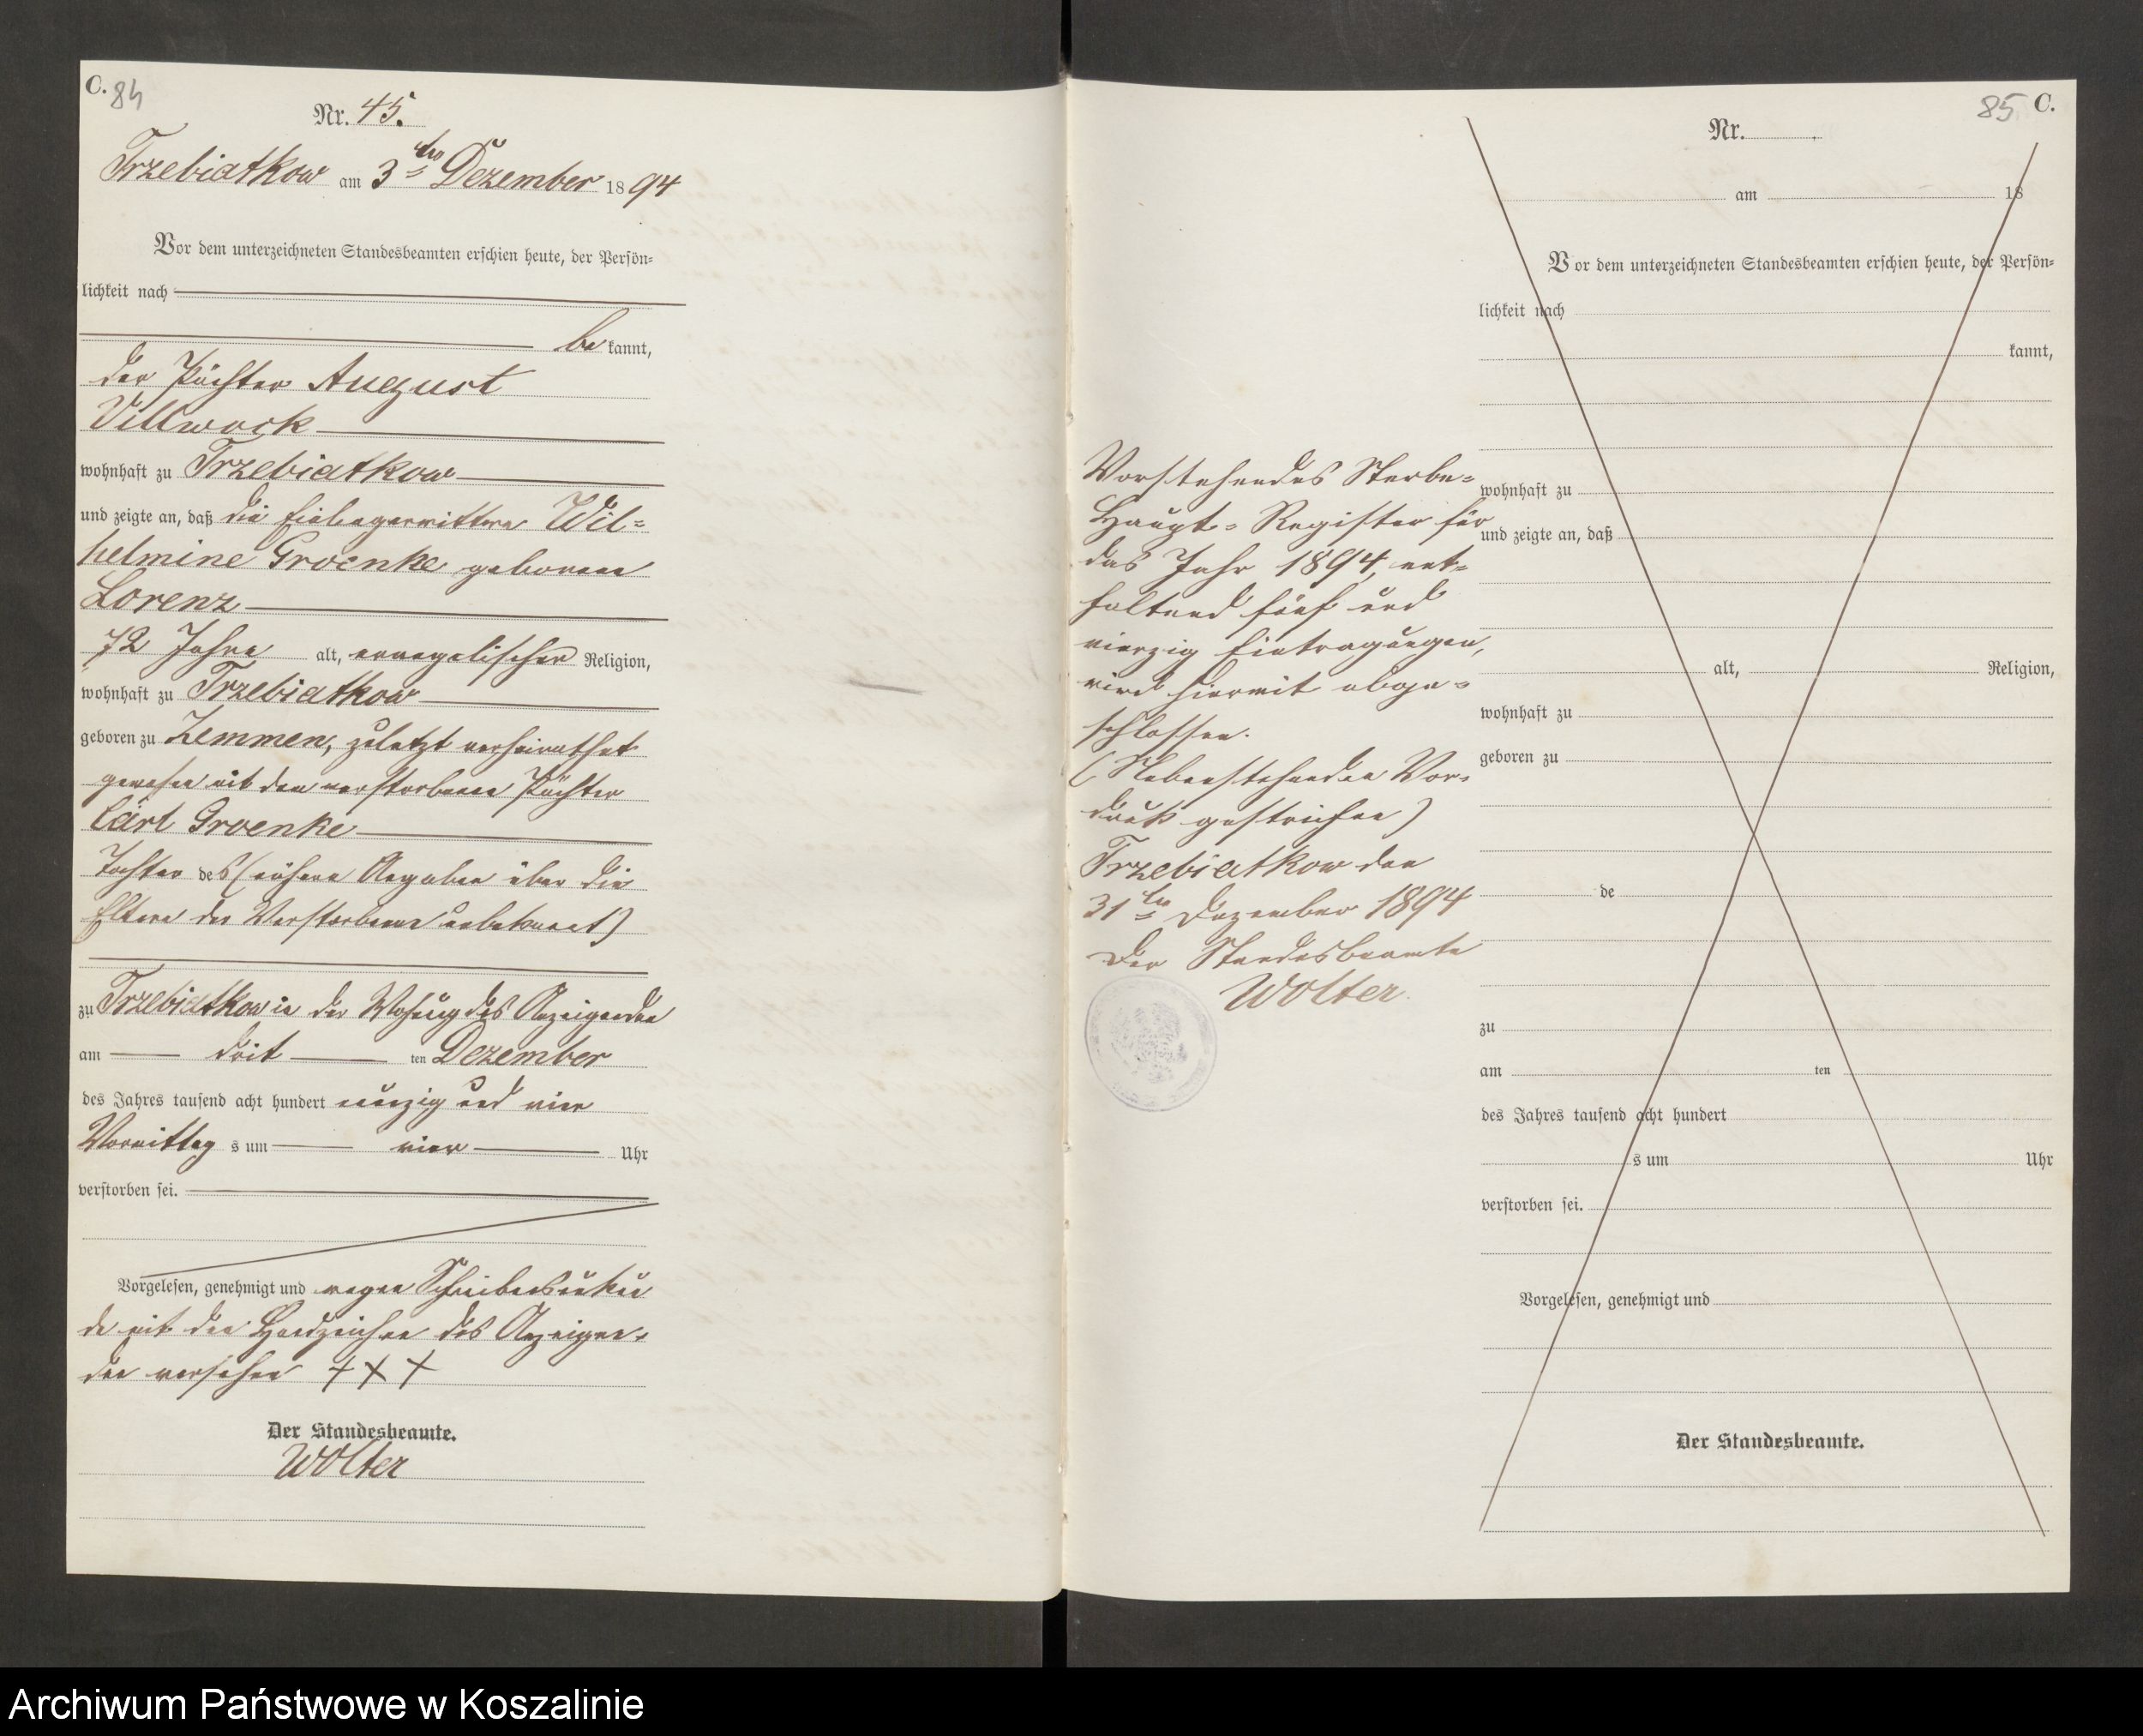 C. 84
Nr. 45.
Trzebiatkow am 3ten Dezember 1894
Vor dem unterzeichneten Standesbeamten erschien heute, der Persön=
lichkeit nach
be kannt,
der Pächter August
Villwock
wohnhaft zu Trzebiatkow
und zeigte an, daß die Einliegerwittwe Wil=
helmine Groenke geborene
Lorenz
72 Jahre alt, evangelischer Religion,
wohnhaft zu Trzebiatkow
geboren zu Zemmen, zuletzt verheirathet
gewesen mit dem verstorbenen Pächter
Carl Groenke
Tochter des (nähere Angaben über die
Eltern der Verstorbenen unbekannt)
zu Trzebiatkow in der Wohnung des Anzeigenden
am dritten Dezember
des Jahres tausend acht hundert neunzig und vier
Vormittag s um vier Uhr
verstorben sei.
Vorgelesen, genehmigt und wegen Schreibensunkun
de mit den Handzeichen des Anzeigen=
den versehen + + +
Der Standesbeamte.
Wolter
Vorstehendes Sterbe=
Haupt=Register für
das Jahr 1894, ent=
haltend fünf und
vierzig Eintragungen,
wird hiermit abge=
schlossen.
(Nebenstehender Vor=
druck gestrichen)
Trzebiatkow den
31ten Dezember 1894
Der Standesbeamte
Wolter.
85 C.
Nr.
am 18
Vor dem unterzeichneten Standesbeamten erschien heute, der Persön=
lichkeit nach
kannt,
wohnhaft zu
und zeigte an, daß
alt, Religion,
wohnhaft zu
geboren zu
de
zu
am ten
des Jahres tausend acht hundert
s um Uhr
verstorben sei.
Vorgelesen, genehmigt und
Der Standesbeamte.
Archiwum Państwowe w Koszalinie